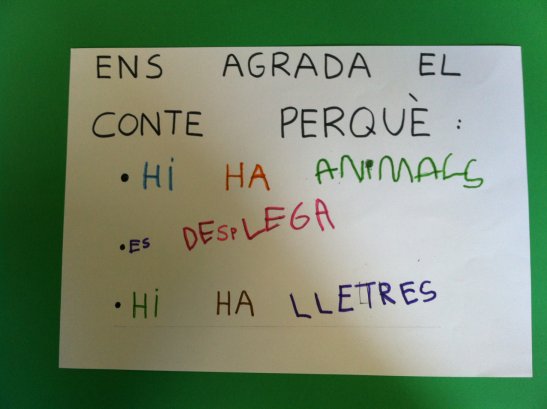 ENS AGRADA EL
CONTE PERQUÈ :
• Hi HA ANiMALS
• ES DESPLEGA
• Hi HA LLETRES